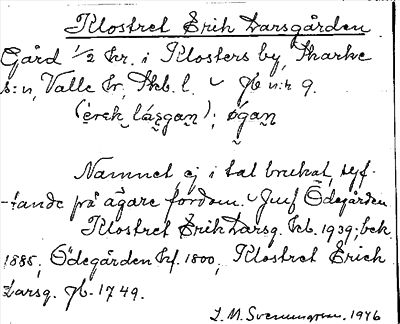 Klostret Erik Larsgården
Gård 1/2 kr. i Klosters by, Skarke
s:n, Valle hr, Skb. l. jb n:r 9.
Namnet ej i tal brukat, syf-
-tande på ägare fordom. Jmf Ödegården
Klostret Erik Larsg. kb. 1939; bek.
1885, Ödegården hf. 1800, Klostret Erich
Larsg. jb. 1749.